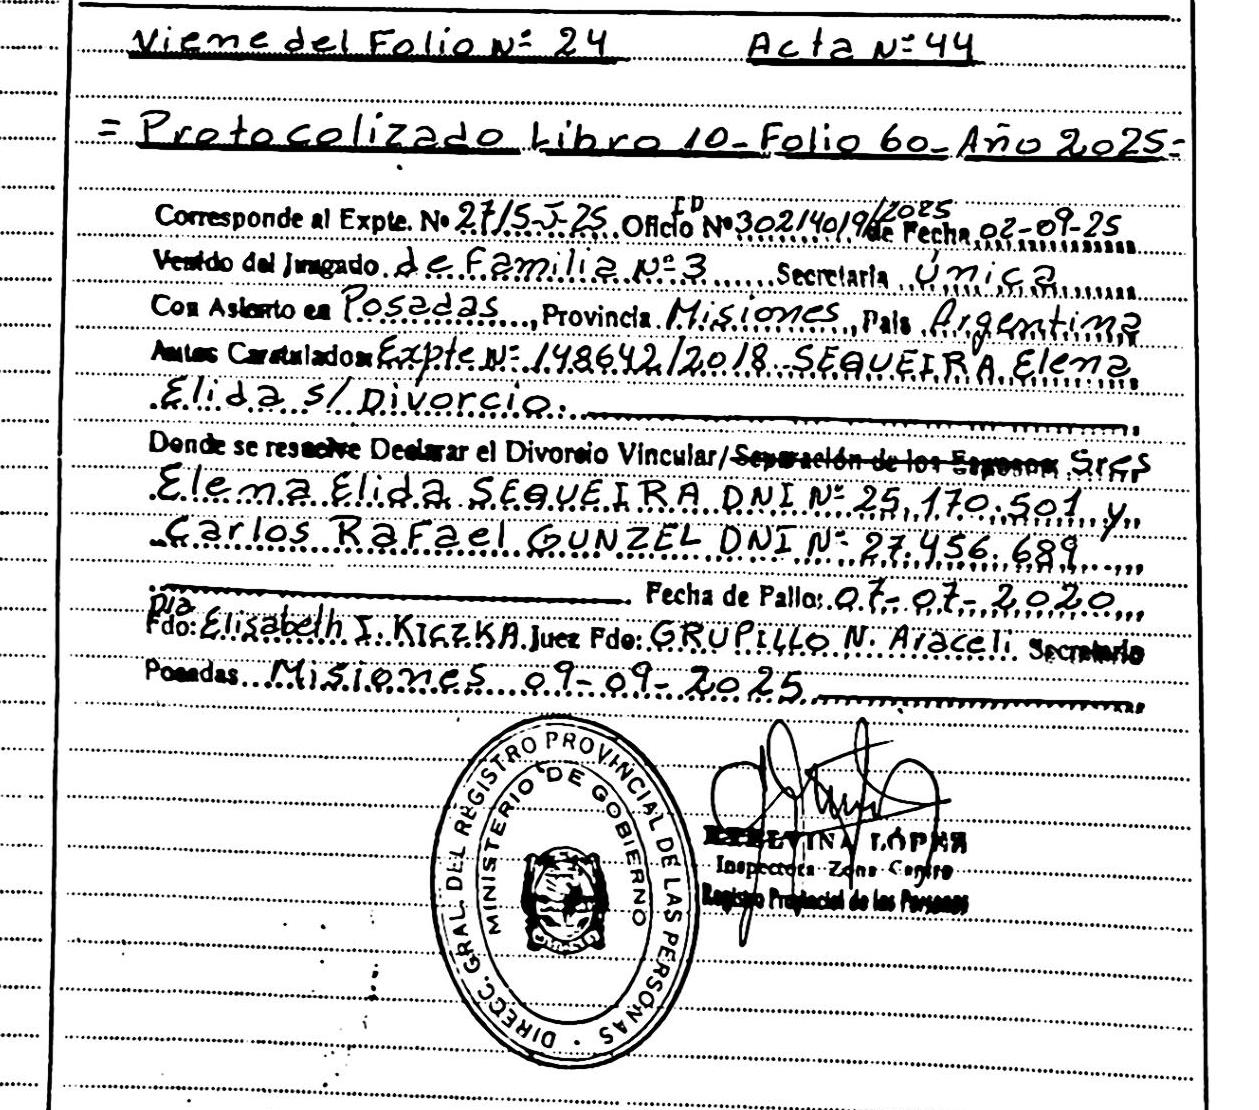 Viene del Folio Nº 24 Acta Nº 44
= Protocolizado Libro 10- Folio 60- Año 2025=
Corresponde al Expte. Nº 27/5-J-25 Oficio ED Nº 30214019/2025 de Fecha 02-09-25
Venido del Juzgado de Familia Nº 3 Secretaria Única
Con Asiento en Posadas, Provincia Misiones, Pais Argentina
Autos Caratulados Expte Nº 148642/2018 SEQUEIRA Elena
Elida s/ Divorcio.
Donde se resuelve Declarar el Divorcio Vincular/Separación de los Esposos Sres
Elena Elida SEQUEIRA DNI Nº 25.170.501 y
Carlos Rafael GUNZEL DNI Nº 27.456.689
Fecha de Fallo: 07-07-2020
Fdo: Dra Elisabelh I. KICZKA Juez Fdo: GRUPILLO N. Araceli Secretario
Posadas Misiones 09-09-2025
DIRECC. GRAL. DEL REGISTRO PROVINCIAL DE LAS PERSONAS
MINISTERIO DE GOBIERNO
ETELVINA LÓPEZ
Inspectora Zona Centro
Registro Provincial de las Personas